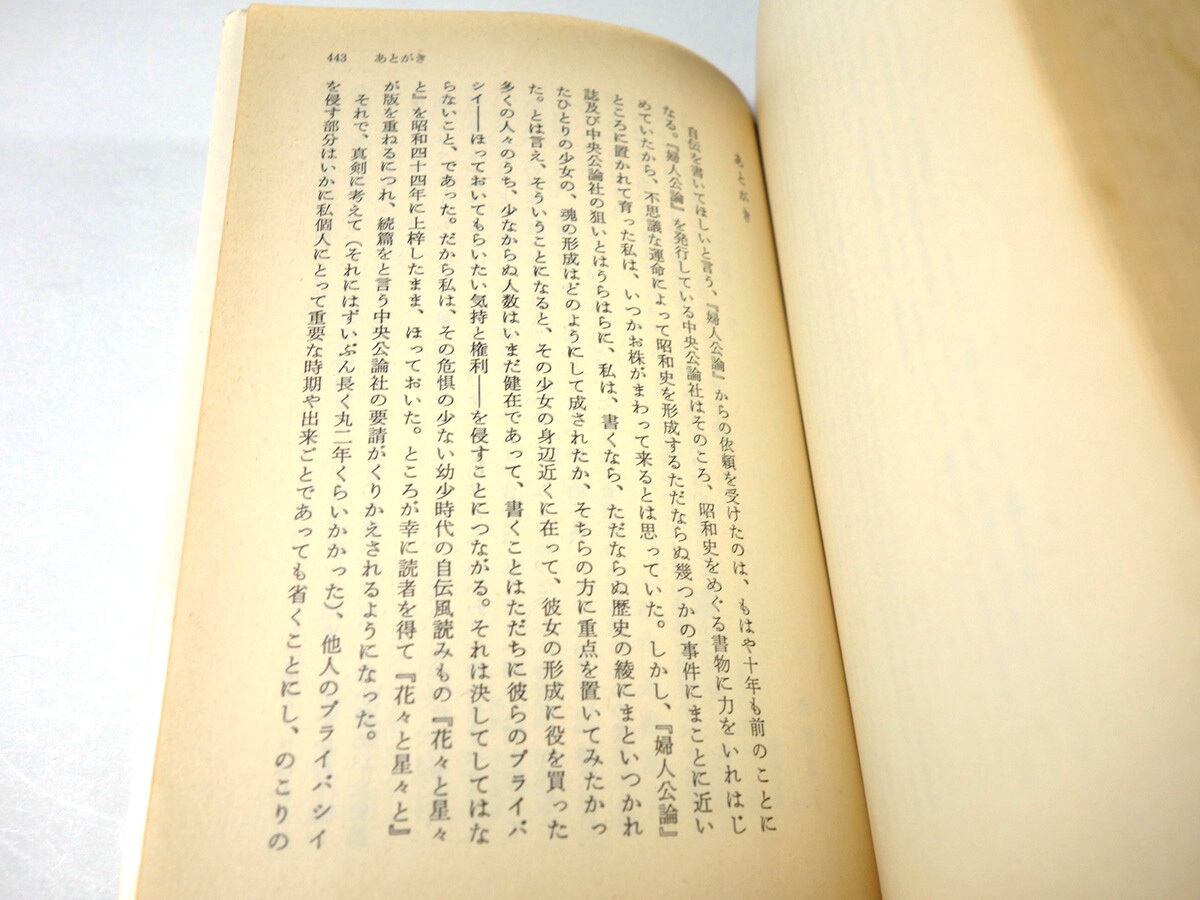 443　あとがき
あとがき
自伝を書いてほしいと言う、『婦人公論』からの依頼を受けたのは、もはや十年も前のことに
なる。『婦人公論』を発行している中央公論社はそのころ、昭和史をめぐる書物に力をいれはじ
めていたから、不思議な運命によって昭和史を形成するただならぬ幾つかの事件にまことに近い
ところに置かれて育った私は、いつかお株がまわって来るとは思っていた。しかし、『婦人公論』
誌及び中央公論社の狙いとはうらはらに、私は、書くなら、ただならぬ歴史の綾にまといつかれ
たひとりの少女の、魂の形成はどのようにして成されたか、そちらの方に重点を置いてみたかっ
た。とは言え、そういうことになると、その少女の身辺近くに在って、彼女の形成に役を買った
多くの人々のうち、少なからぬ人数はいまだ健在であって、書くことはただちに彼らのプライバ
シイ――ほっておいてもらいたい気持と権利――を侵すことにつながる。それは決してしてはな
らないこと、であった。だから私は、その危惧の少ない幼少時代の自伝風読みもの『花々と星々
と』を昭和四十四年に上梓したまま、ほっておいた。ところが幸に読者を得て『花々と星々と』
が版を重ねるにつれ、続篇をと言う中央公論社の要請がくりかえされるようになった。
それで、真剣に考えて（それにはずいぶん長く丸二年くらいかかった）、他人のプライバシイ
を侵す部分はいかに私個人にとって重要な時期や出来ごとであっても省くことにし、のこりの